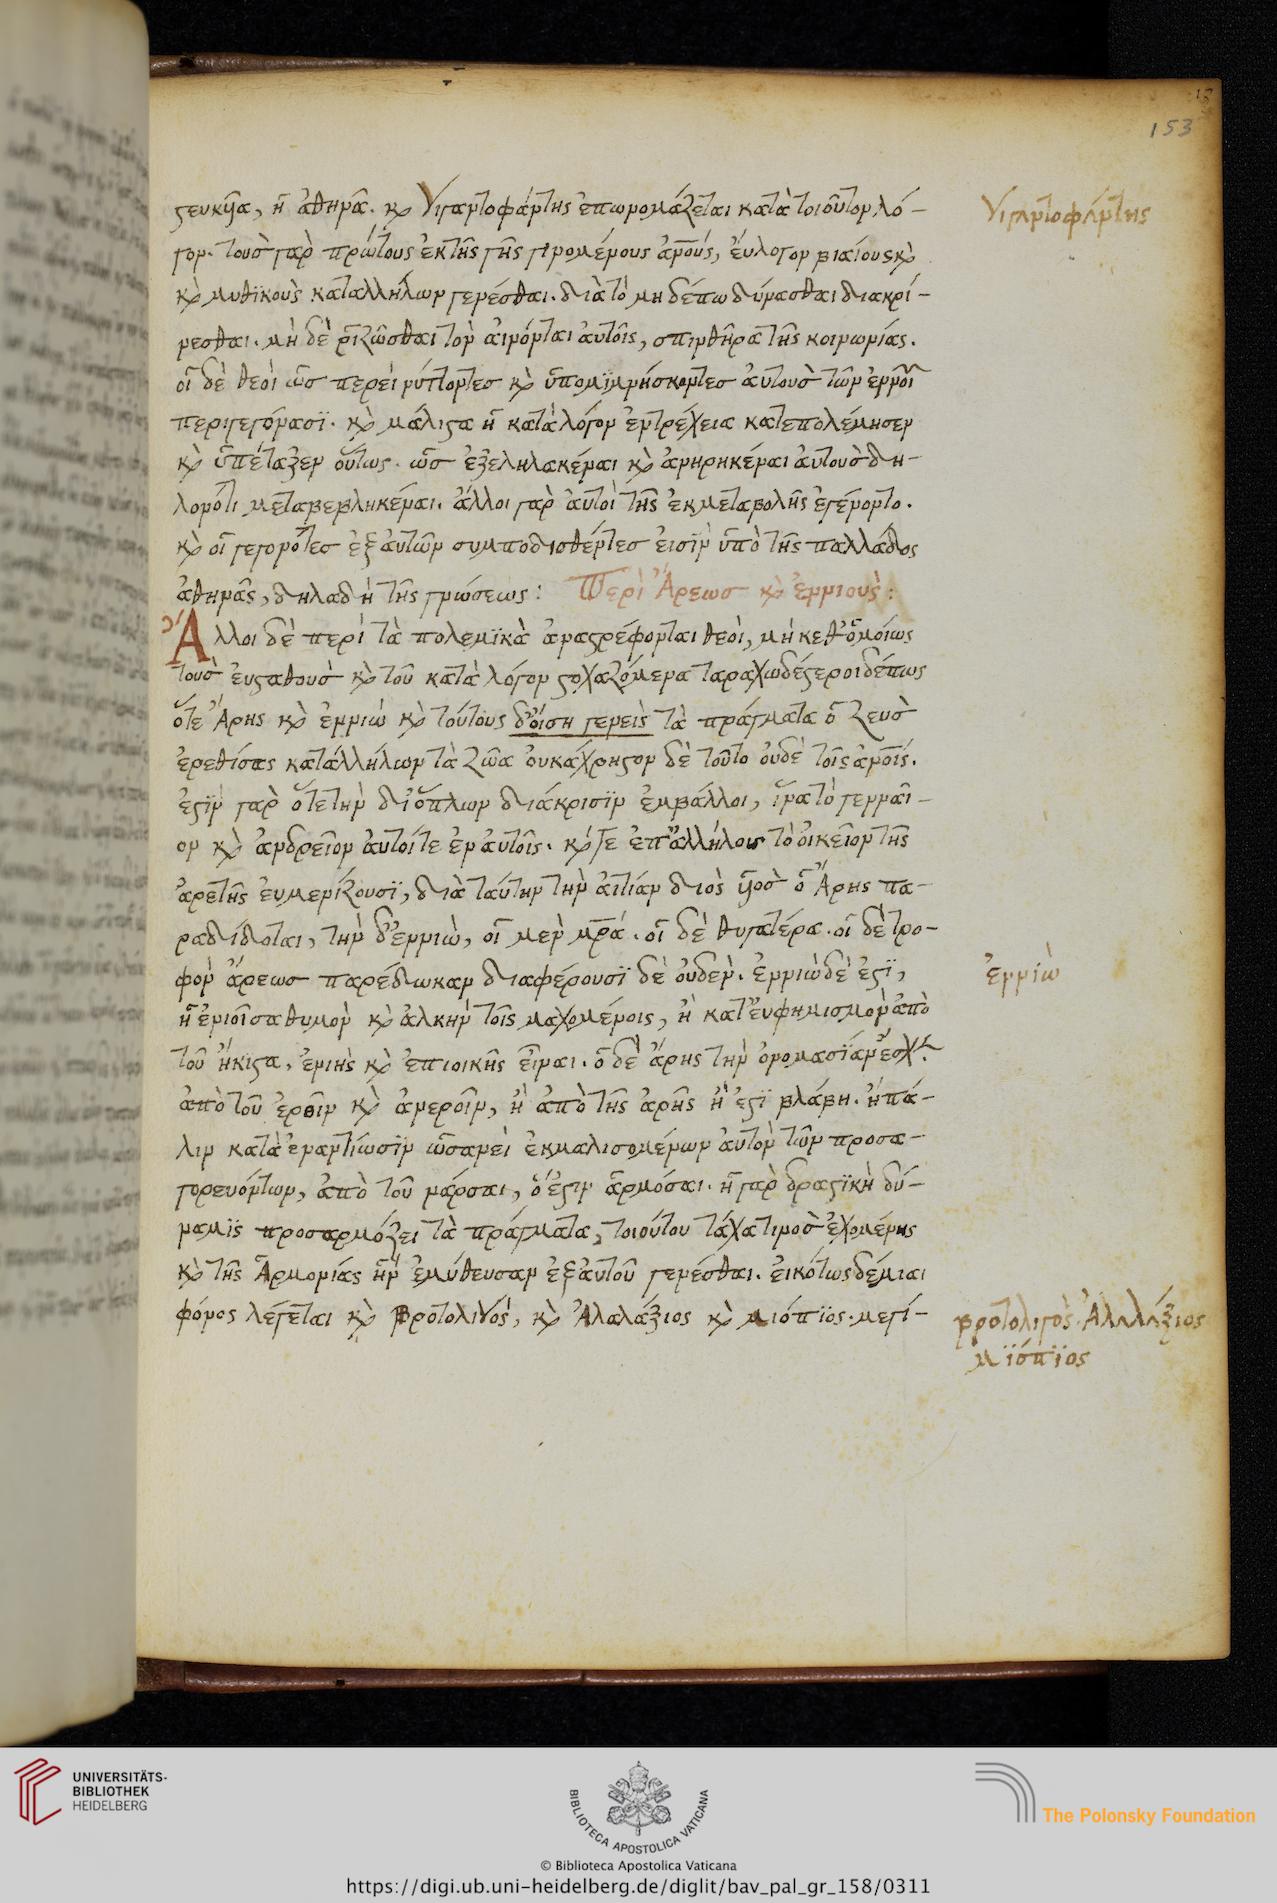 153
ϛευκῆα, ἡ ἀθηνᾶ. κὶ Γιγαντοφάντης ἐπωνομάζεται κατὰ τοιοῦτον λό-
Γιγαντοφάντης
γον. τοὺσ γὰρ πρώτους ἐκ τῆς γῆς γενομένους ἀνους, ἔυλογον βιαίους κὶ
κὶ μυθϊκοὺς κατ αλλήλων γενέσθαι. διὰ τὸ μηδέπω δύνασθαι διακρί-
νεσθαι. μὴ δὲ ῥιζῶσθαι τὸν ἀινόνται ἀυτοῖς, σπινθῆρα τῆς κοινωνίας.
οἱ δὲ θεοὶ ὡσ περεὶ νύττοντεσ κὶ ὑπομϊμνήσκοντεσ ἀυτοὺσ τῶν ἐννοι
περιγεγόνασϊ. κὶ μάλιϛα ἡ κατὰ λόγον ἐντρέχεια κατεπολέμησεν
κὶ ὑπέταξεν οὕτως. ὡσ ἐξεληλακέναι κὶ ἀνηρηκέναι ἀυτοὺσ δη-
λονότι μεταβεβληκέναι. ἄλλοι γὰρ ἀυτοὶ τῆς ἐκμεταβολῆς ἐγένοντο.
κὶ οἱ γεγονότεσ ἐξ ἀυτῶν συμποδισθέντεσ ἐισὶν ὑπὸ τῆς παλλάδος
ἀθηνᾶς, δηλαδὴ τῆς γνώσεως: Περὶ Ἄρεωσ κὶ ἐννιοὺς:
Ἄλλοι δὲ περὶ τὰ πολεμϊκὰ ἀναϛρέφονται θεοὶ, μὴ κεθ' ὁμοίως
τοὺσ ἐυϛαθοὺσ κὶ τοῦ κατὰ λόγον ϛοχαζόμενα ταραχωδέϛεροι δέπως
ὅτε Ἄρης κὶ ἐννιὼ κὶ τούτους δ'όιση γενεὶς τὰ πράγματα ὁ Ζευσ
ἐρεθίσας κατ ἀλλήλων τὰ ζῶα ὀυκ ἄχρηϛον δὲ τοῦτο ὀυδὲ τοῖς ἀνοις.
ἐϛϊν γὰρ ὅτε τὴν δι' ὅπλων διάκρισϊν ἐμβάλλοι, ἵνα τὸ γενναῖ-
ον κὶ ἀνδρεῖον ἀυτοίτε ἐν ἀυτοῖς. κὶ τε ἐπ' ἀλλήλοις τὸ ὀικεῖον τῆς
ἀρετῆς ἐυμερίζουσϊ, διὰ ταύτην τὴν ἀιτίαν διὸς ὑοσ ὁ Ἄρης πα-
ραδίδοται, τὴν δ' ἐννιὼ, οἱ μεν μρα. οἱ δὲ θυγατέρα. οἱ δὲ τρο-
φὸν ἄρεωσ παρέδωκαν διαφέρουσϊ δὲ ὀυδεν. ἐννιὼ δὲ ἐϛϊ,
ἐννιὼ
ἡ ἐνιοῖσα θυμὸν κὶ ἀλκὴν τοῖς μαχομένοις, ἢ κατ' ἐυφημισμὸν ἀπὸ
τοῦ ἥκιϛα, ἐνιὴς κὶ ἐπιοικῆς εἶναι. ὁ δὲ ἄρης τὴν ὀνομασϊαν ἔσχ.
ἀπὸ τοῦ ἐροῖν κὶ ἀνεροῖν, ἢ ἀπὸ τῆς ἀρῆς ἥ ἐϛϊ βλάβη. ἢ πά-
λιν κατὰ ἐναντίωσϊν ὡσανεὶ ἐκμαλισομένων ἀυτον τῶν προσα-
γορευόντων, ἀπὸ τοῦ μάρσαι, ὅ ἐϛιν ἁρμόσαι. ἡ γὰρ δραϛϊκὴ δύ-
ναμϊς προσαρμόζει τὰ πράγματα, τοιούτου τάχα τινοσ ἐχομένης
κὶ τῆς Ἁρμονίας ἣν ἐμύθευσαν ἐξ ἀυτοῦ γενέσθαι. ἐικότως δέ μιαι
φόνος λέγεται κὶ βροτολιγὸς, κὶ Ἀλαλάξιος κὶ μιόπϊος. μεγί-
βροτολιγὸς. Ἀλαλάξιος
μϊόπϊος
UNIVERSITÄTS-
BIBLIOTHEK
HEIDELBERG
BIBLIOTECA APOSTOLICA VATICANA
The Polonsky Foundation
© Biblioteca Apostolica Vaticana
https://digi.ub.uni-heidelberg.de/diglit/bav_pal_gr_158/0311